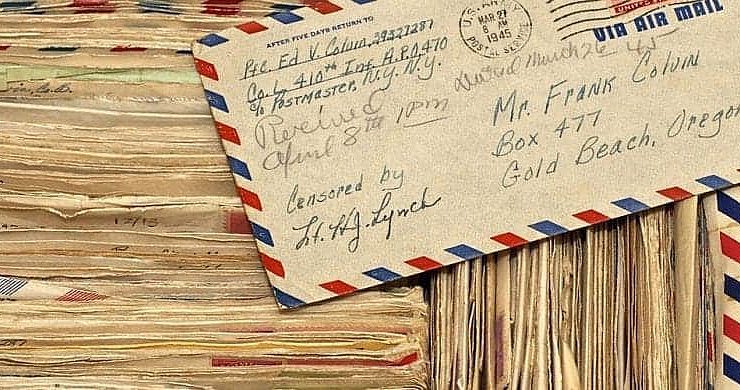 AFTER FIVE DAYS RETURN TO
Pfc. Ed V. Colvin, 39327287
Co. L, 410th Inf. A.P.O. 470
c/o Postmaster, N.Y. N.Y.
Received
April 8th 1 pm
Censored by
Lt. H.J. Lynch
U.S. ARMY
MAR 27
PM
1945
POSTAL SERVICE
UNITED STATES
VIA AIR MAIL
March 26 45
Mr. Frank Colvin
Box 477
Gold Beach, Oregon